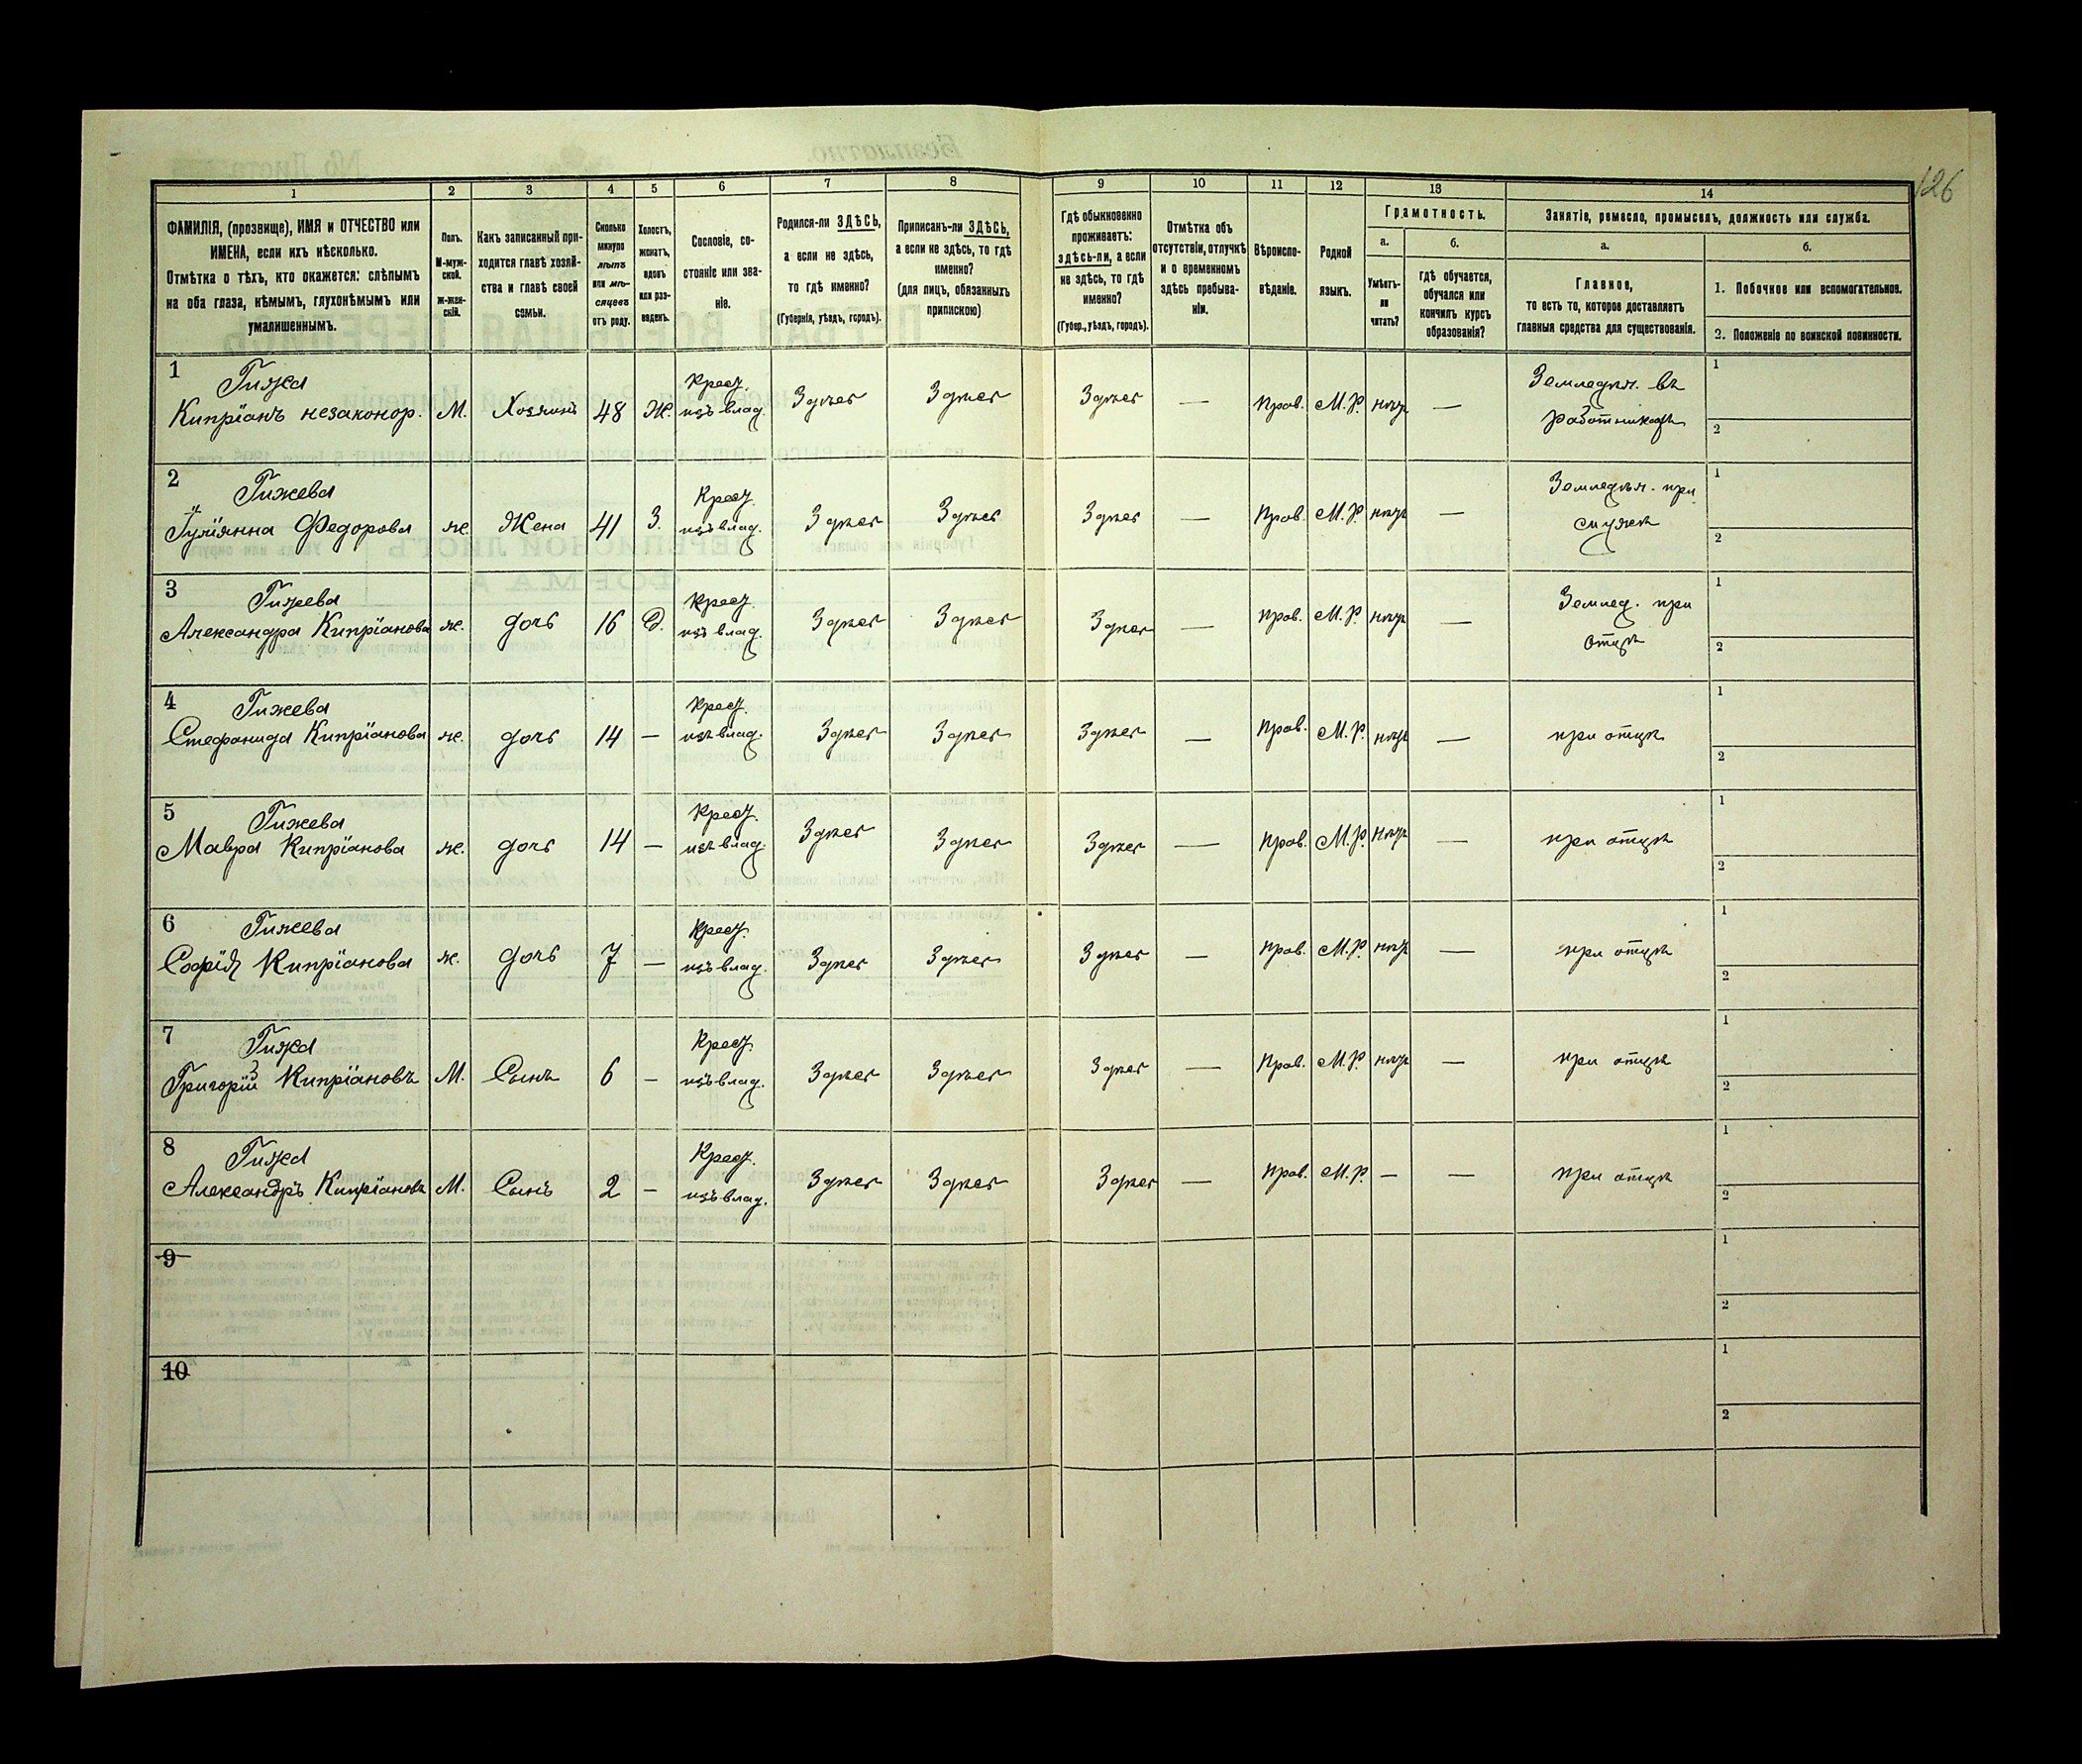 126
1 2 3 4 5 6 7 8 9 10 11 12 13 14
ФАМИЛІЯ, (прозвище), ИМЯ и ОТЧЕСТВО или ИМЕНА, если ихъ нѣсколько.
Отмѣтка о тѣхъ, кто окажется: слѣпымъ на оба глаза, нѣмымъ, глухонѣмымъ или умалишеннымъ.
Полъ.
М-муж-
ской.
Ж-жен-
скій.
Какъ записанный при-
ходится главѣ хозяй-
ства и главѣ своей
семьи.
Сколько
минуло
лѣтъ
или мѣ-
сяцевъ
отъ роду.
Холостъ,
женатъ,
вдовъ
или раз-
веденъ.
Сословіе, со-
стояніе или зва-
ніе.
Родился-ли ЗДѢСЬ,
а если не здѣсь,
то гдѣ именно?
(Губернія, уѣздъ, городъ).
Приписанъ-ли ЗДѢСЬ,
а если не здѣсь, то гдѣ
именно?
(для лицъ, обязанныхъ
припискою)
Гдѣ обыкновенно
проживаетъ:
здѣсь-ли, а если
не здѣсь, то гдѣ
именно?
(Губер., уѣздъ, городъ).
Отмѣтка объ
отсутствіи, отлучкѣ
и о временномъ
здѣсь пребыва-
ніи.
Вѣроиспо-
вѣданіе.
Родной
языкъ.
Грамотность.
а.
Умѣетъ-
ли
читать?
б.
гдѣ обучается,
обучался или
кончилъ курсъ
образованія?
Занятіе, ремесло, промыселъ, должность или служба.
а.
Главное,
то есть то, которое доставляетъ
главныя средства для существованія.
б.
1. Побочное или вспомогательное.
2. Положеніе по воинской повинности.
1 Гижа
Кипріанъ незаконор. М. Хозяинъ 48 Ж. Крест. изъ влад. Здѣсь Здѣсь Здѣсь — Прав. М.Р. нѣтъ — Земледѣл. въ работникахъ 1 2
2 Гижева
Гуліянна Федорова ж. Жена 41 З. Крест. изъ влад. Здѣсь Здѣсь Здѣсь — Прав. М.Р. нѣтъ — Земледѣл. при мужѣ 1 2
3 Гижева
Александра Кипріанова ж. дочь 16 Д. Крест. изъ влад. Здѣсь Здѣсь Здѣсь — Прав. М.Р. нѣтъ — Землед. при отцѣ 1 2
4 Гижева
Стефанида Кипріанова ж. дочь 14 — Крест. изъ влад. Здѣсь Здѣсь Здѣсь — Прав. М.Р. нѣтъ — при отцѣ 1 2
5 Гижева
Мавра Кипріанова ж. дочь 14 — Крест. изъ влад. Здѣсь Здѣсь Здѣсь — Прав. М.Р. нѣтъ — при отцѣ 1 2
6 Гижева
Софія Кипріанова ж. дочь 7 — Крест. изъ влад. Здѣсь Здѣсь Здѣсь — Прав. М.Р. нѣтъ — при отцѣ 1 2
7 Гижа
Григорій Кипріановъ М. Сынъ 6 — Крест. изъ влад. Здѣсь Здѣсь Здѣсь — Прав. М.Р. нѣтъ — при отцѣ 1 2
8 Гижа
Александръ Кипріановъ М. Сынъ 2 — Крест. изъ влад. Здѣсь Здѣсь Здѣсь — Прав. М.Р. — — при отцѣ 1 2
9 1 2
10 1 2